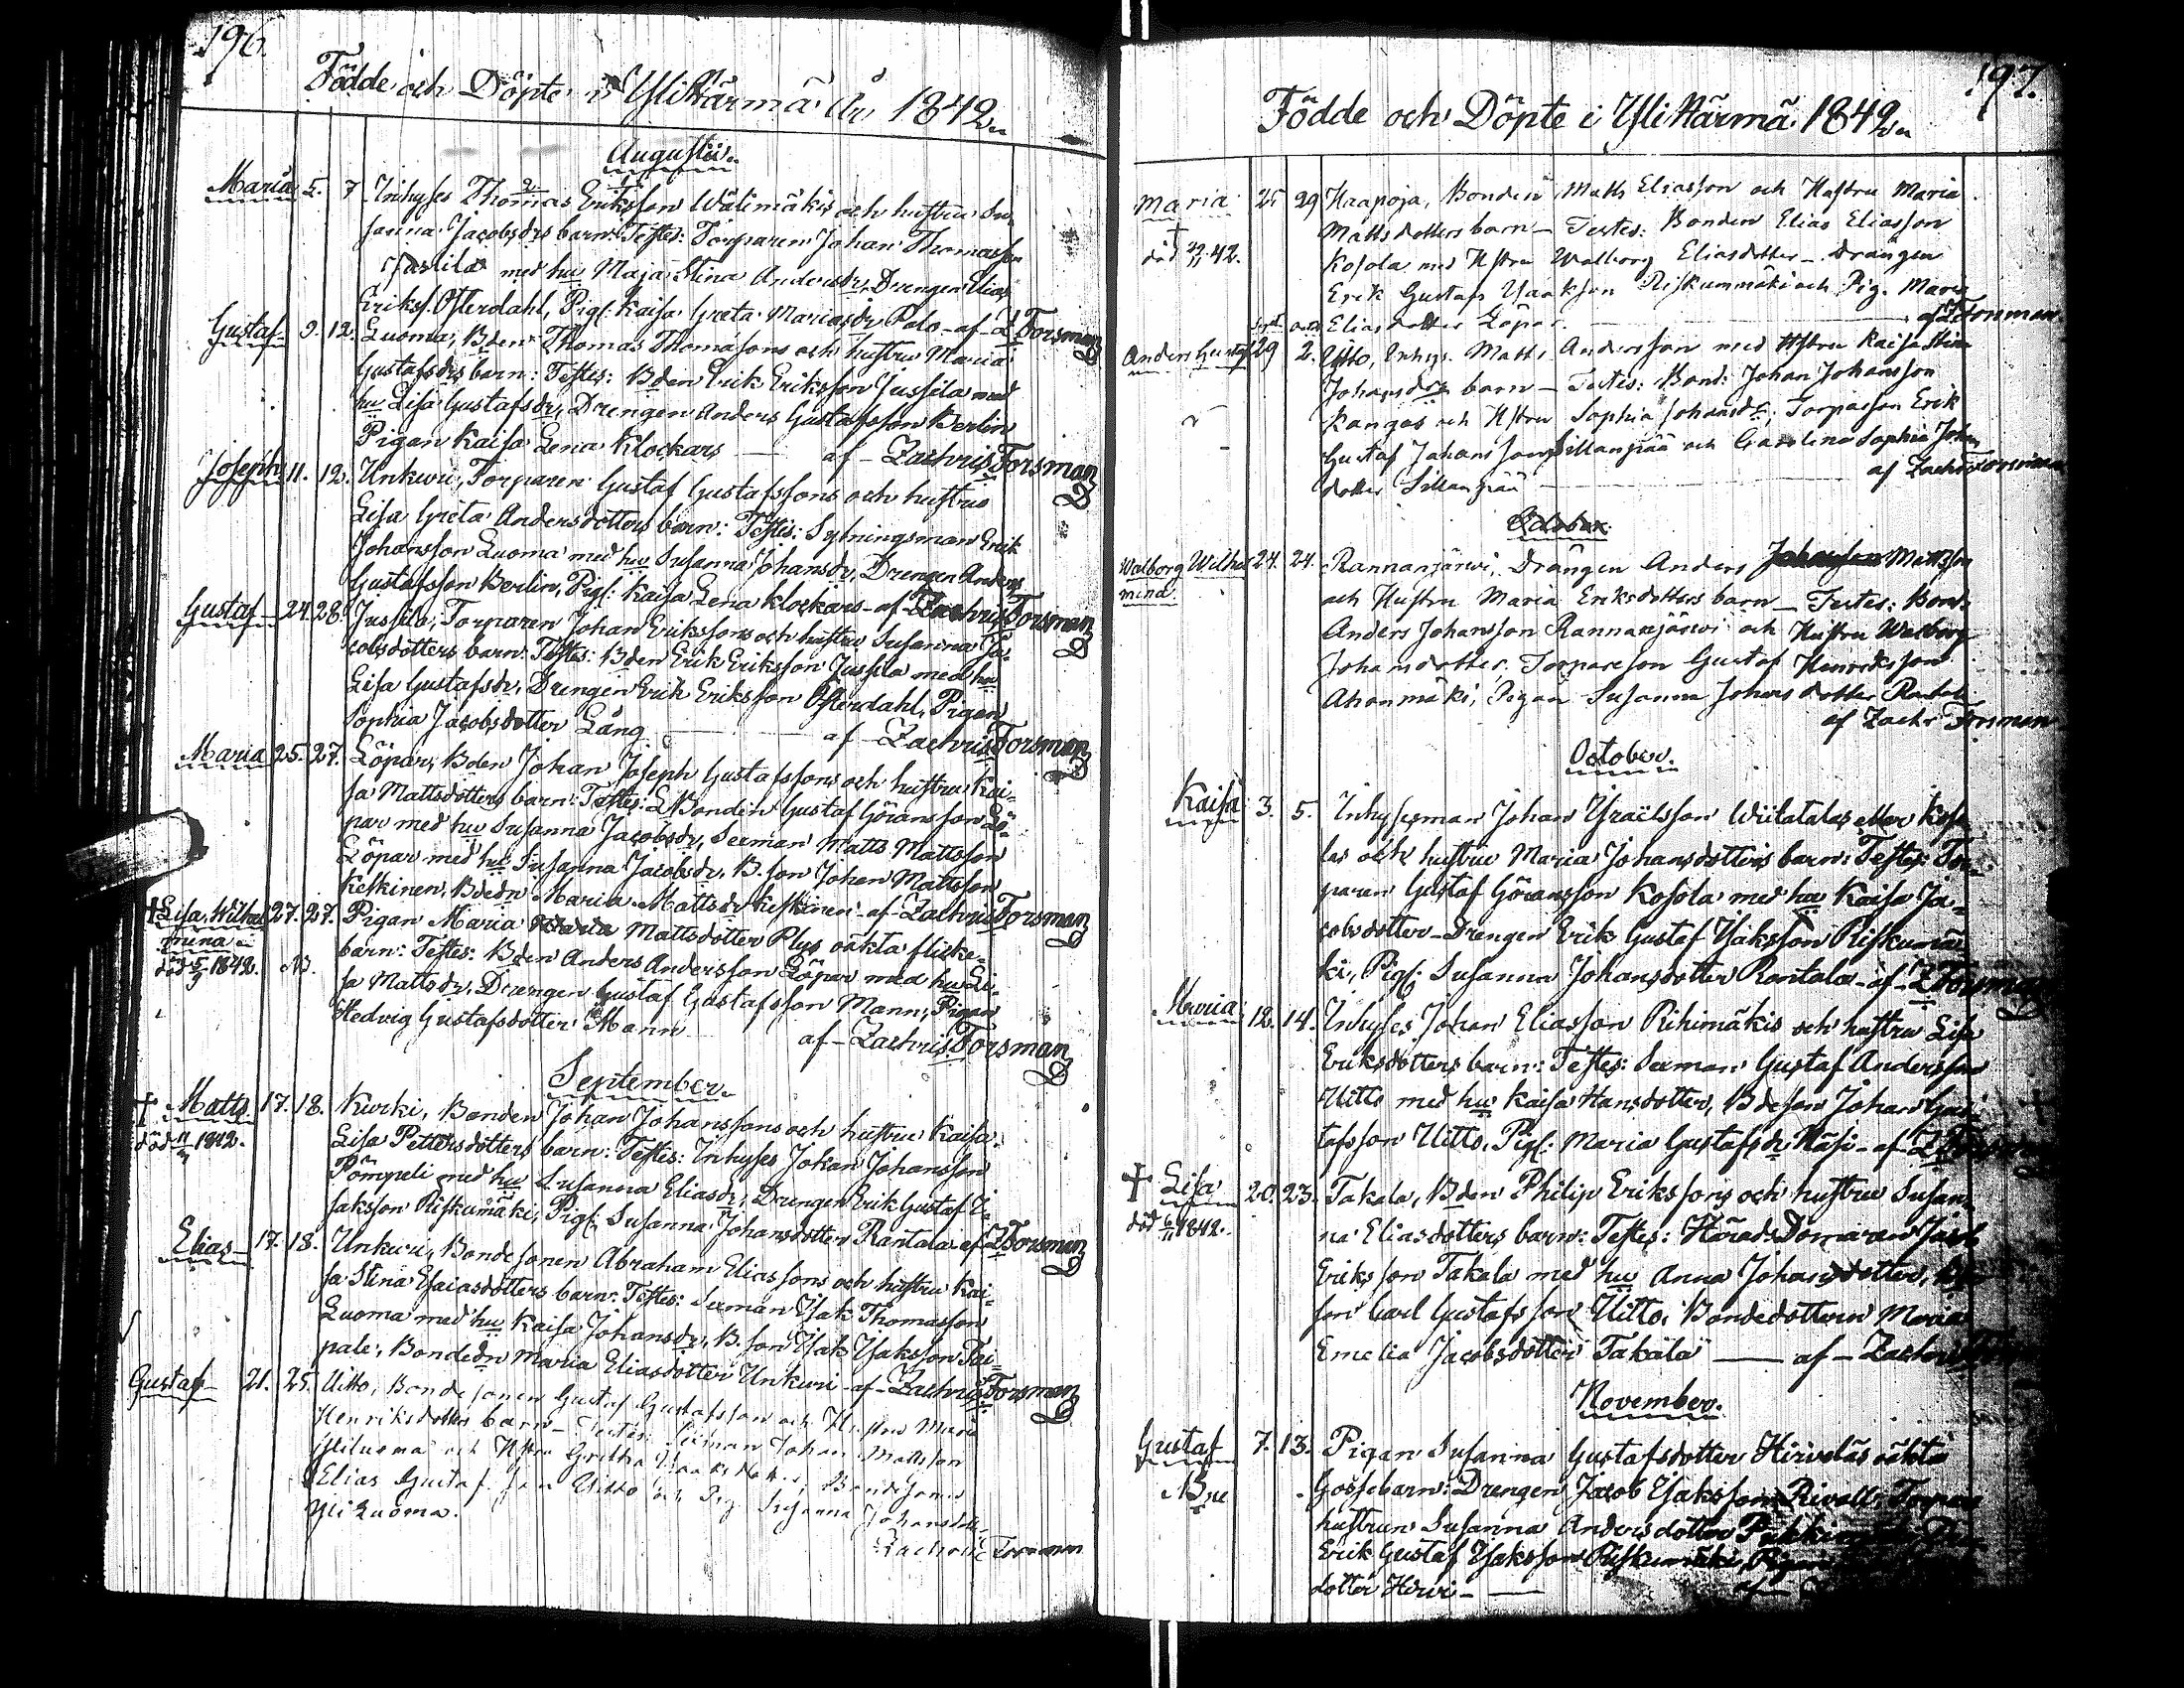 196.
Födde och Döpte i YliHärmä År 1842
Augustii.
Maria 5. 7 Inhyses Thomas Eriksson Wälimäkis och hustru Su,
sanna Jacobsdrs barn: Testes: Torparen Johan Thomasson
Jussila med hu Maja Stina Andersdr, Drengen Elias
Erikss. Österdahl, Pigs. Kaisa Greta Mariasdr Palo - af - Z Forsman
Gustaf 9. 12. Luoma, Bden Thomas Thomassons och hustru Maria
Gustafsdrs barn: Testes: Bden Erik Eriksson Jussila med
hu Lisa Gustafsdr, Drengen Anders Gustafsson Berlin
Pigan Kaisa Lena Klockars — af - Zachris Forsman
Joseph 11. 12. Unkuri, Torparen Gustaf Gustafssons och hustrus
Lisa Greta Andersdotters barn: Testes: Sytningsman Erik
Johansson Luoma med hu Susanna Johansdr, Drengen Anders
Gustafsson Berlin, Pigs: Kaisa Lena Klockars - af - Zachris Forsman
Gustaf 24. 28. Jussila, Torparen Johan Erikssons och hustru Susanna Ja-
cobsdotters barn: Testes: Bden Erik Eriksson Jussila med hu
Lisa Gustafsdr, Drengen Erik Eriksson Österdahl, Pigan
Sophia Jacobsdotter Lång — af - Zachris Forsman
Maria 25. 27. Löpar, Bden Johan Joseph Gustafssons och hustru Kai-
sa Mattsdotters barn: Testes: Bonden Gustaf Göransson Lö-
par med hu Susanna Jacobsdr, Seeman Matts Mattsson
Löpar med hu Susanna Jacobsdr, B. son Johan Mattsson
Keskinen, Bdedn Maria Mattsdr Keskinen - af - Zachris Forsman
† Lisa Wilhel 27. 27. Pigan Maria Mattsdotter Plys oäkta flicke-
mina
barn: Testes: Bden Anders Andersson Löpar med hu Li-
död 5/9 1842. NB.
sa Mattsdr, Drengen Gustaf Gustafsson Mann, Pigan
Hedvig Gustafsdotter Mann af - Zachris Forsman
September.
† Matts 17. 18. Kurki, Bonden Johan Johanssons och hustru Kaisa
död 1842.
Lisa Pettersdotters barn: Testes: Inhyses Johan Johansson
Pömpeli med hu Susanna Eliasdr, Drengen Erik Gustaf I-
saksson Riskumäki, Pigs: Susanna Johansdotter Rantala - af Z Forsman
Elias 17. 18. Unkuri, Bondesonen Abraham Eliassons och hustru Kai-
sa Stina Esaiasdotters barn: Testes: Seeman Isak Thomasson
Luoma med hu Kaisa Johansdr, B. son Isak Isaksson Tri-
pale, Bondedn Maria Eliasdotter Unkuri - af - Zachris Forsman
Gustaf 21. 25. Uitto, Bondesonen Gustaf Gustafsson och Hustru Maria
Henriksdotters barn - Testes: Seeman Johan Mattsson
Yliluoma och Hstru Gretha Isaksdotter, Bondesonen
Elias Gustafsson Uitto och Pig. Susanna Johansdotter
Yliluoma.
Zachris Forsman
197.
Födde och Döpte i YliHärmä 1842
Maria 25 29 Haapoja, Bonden Matts Eliasson och Hustru Maria
†
död 42.
Mattsdotters barn - Testes: Bonden Elias Eliasson
Kosola med Hstru Walborg Eliasdotter - Drängen
Erik Gustaf Isaksson Riskummäki och Pig. Maria
Eliasdotter Löpar. — af Z Forsman
Sept. oct.
Anders Gustaf 29 2. Uitto, Inhys. Matts Andersson med Hstru Kaisa Stina
Johansdrs barn - Testes: Bond: Johan Johansson
Kangas och Hstru Sophia Johansdr; Torpasson Erik
Gustaf Johansson Sillanpää och Carolina Sophia Johans
dotter Sillanpää — af Zachris Forsman
October
Walborg Wilhel 24. 24. Rannanjärwi, Drängen Anders Johansson Mattsson
mina.
och Hustru Maria Eriksdotters barn - Testes: Bond:
Anders Johansson Rannanjärwi och Hustru Walborg
Johansdotter, Torpareson Gustaf Henriksson
Ahonmäki, Pigan Susanna Johansdotter Rantala
af Zachr Forsman
October.
Kaisa 3. 5. Inhysesman Johan Israelsson Wiitalalas eller Koso
las och hustru Maria Johansdotters barn: Testes: Tor-
paren Gustaf Göransson Kosola med hu Kaisa Ja-
cobsdotter - Drengen Erik Gustaf Isaksson Riskumä-
ki, Pigs: Susanna Johansdotter Rantala - af - Z Forsman
Maria 12. 14. Inhyses Johan Eliasson Rihimäkis och hustru Lisa
Eriksdotters barn: Testes: Seeman Gustaf Andersson
Uitto med hu Kaisa Hansdotter, Bdeson Johan Gus-
tafsson Uitto, Pigs: Maria Gustafsdr Häsi - af - Z Forsman
† Lisa 20. 23. Takala, Bden Philip Erikssons och hustru Susan-
död 6/11 1842.
na Eliasdotters barn: Testes: HäradsDomaren
Eriksson Takala med hu Anna Johansdotter,
son Carl Gustafsson Uitto, Bondedottern Maria
Emelia Jacobsdotter Takala — af - Zachris
November.
Gustaf 7. 13. Pigan Susanna Gustafsdotter Hirvelas oäkta
NB
Gossebarn: Drengen Jacob Isaksson
hustrun Susanna Andersdotter
Erik Gustaf Isaksson Riskumäki,
dotter Hirvi - —